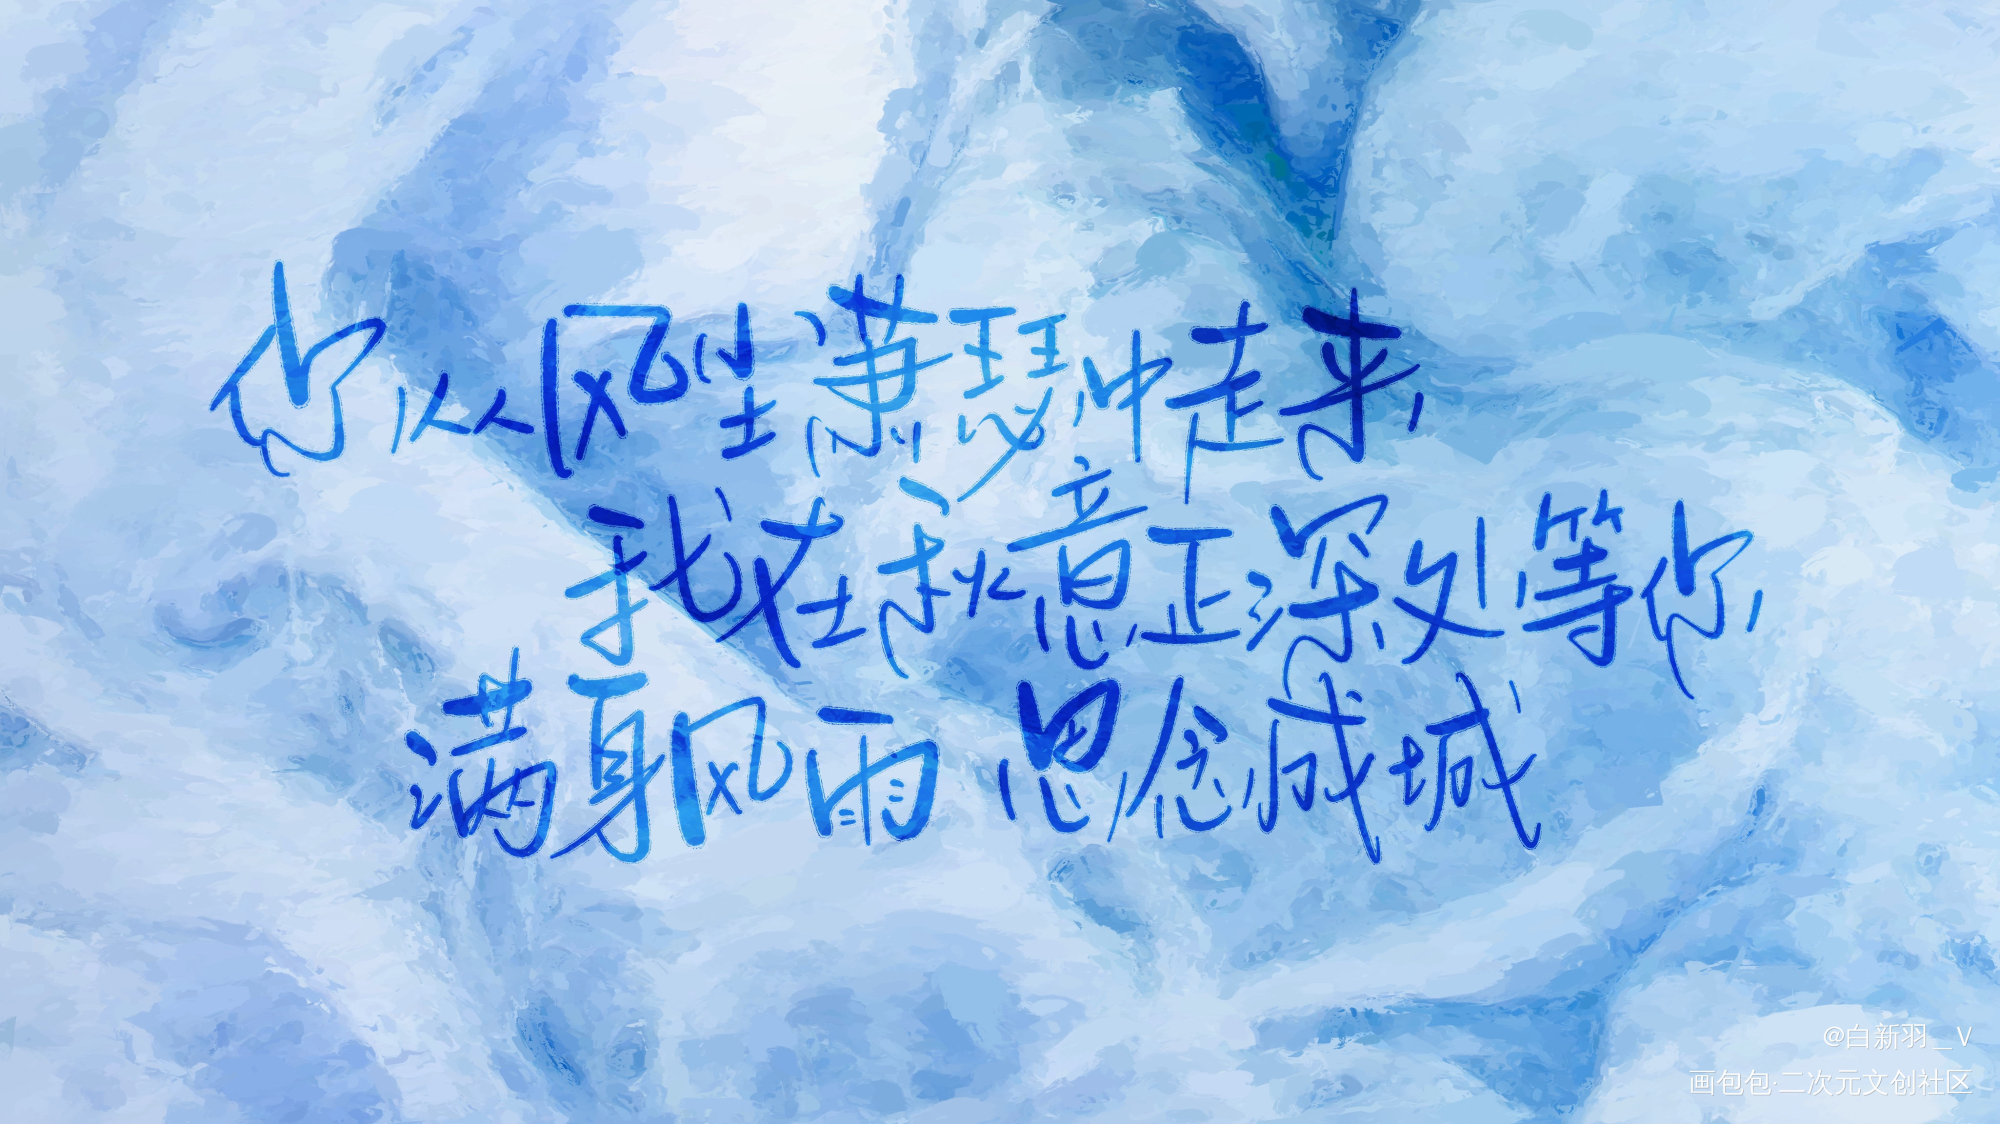 你从风尘萧瑟中走来,
我在秋意正深处等你,
满身风雨 思念成城
@白新羽_V
画包包·二次元文创社区